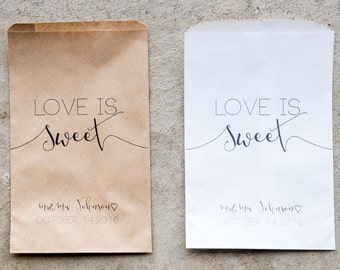 LOVE IS
sweet
mr & mrs Johnson♡
OCTOBER 14 2016
LOVE IS
sweet
mr & mrs Johnson♡
OCTOBER 14 2016